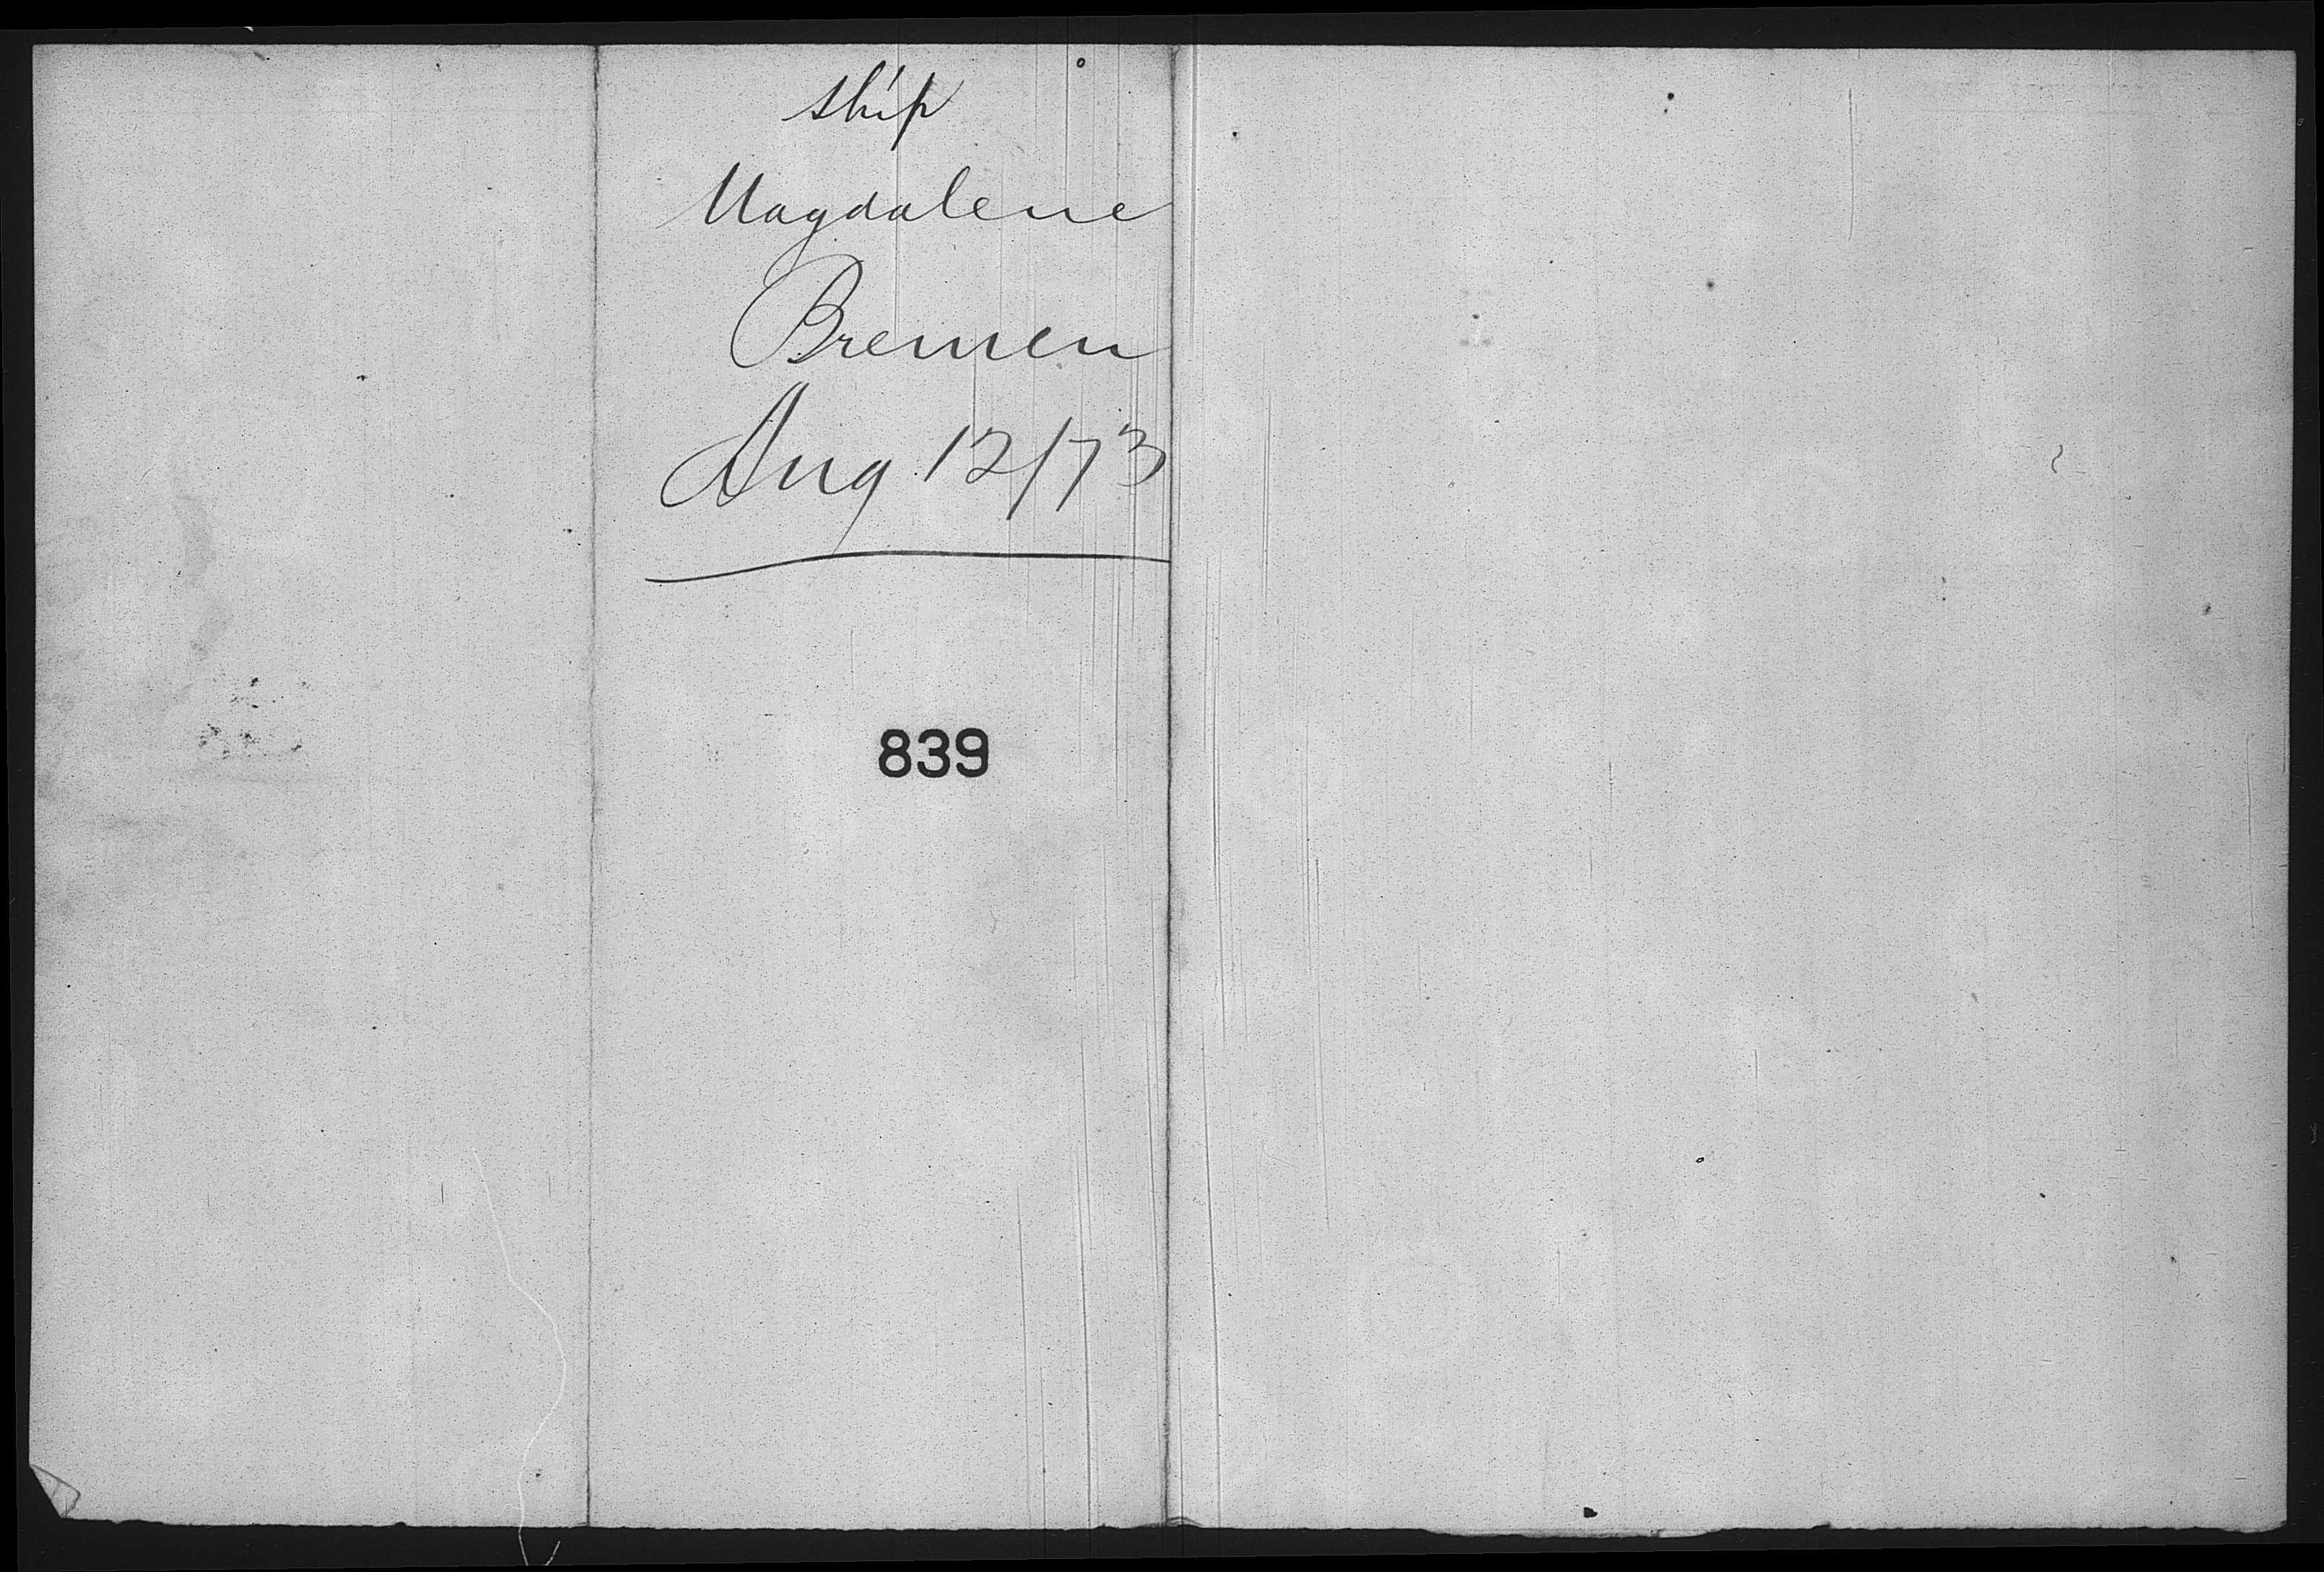 ship
Magdalene
Bremen
Aug 12/73
839